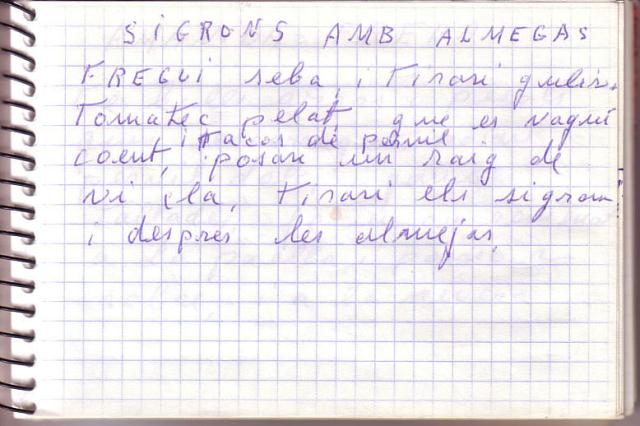 SIGRONS AMB ALMEGAS
FREGUI seba, i Tirari
Tomatec pelat, que es vagui
i tacos de pernil
coent, posari un raig de
vi tirari els sigrons
i despres les almejas,